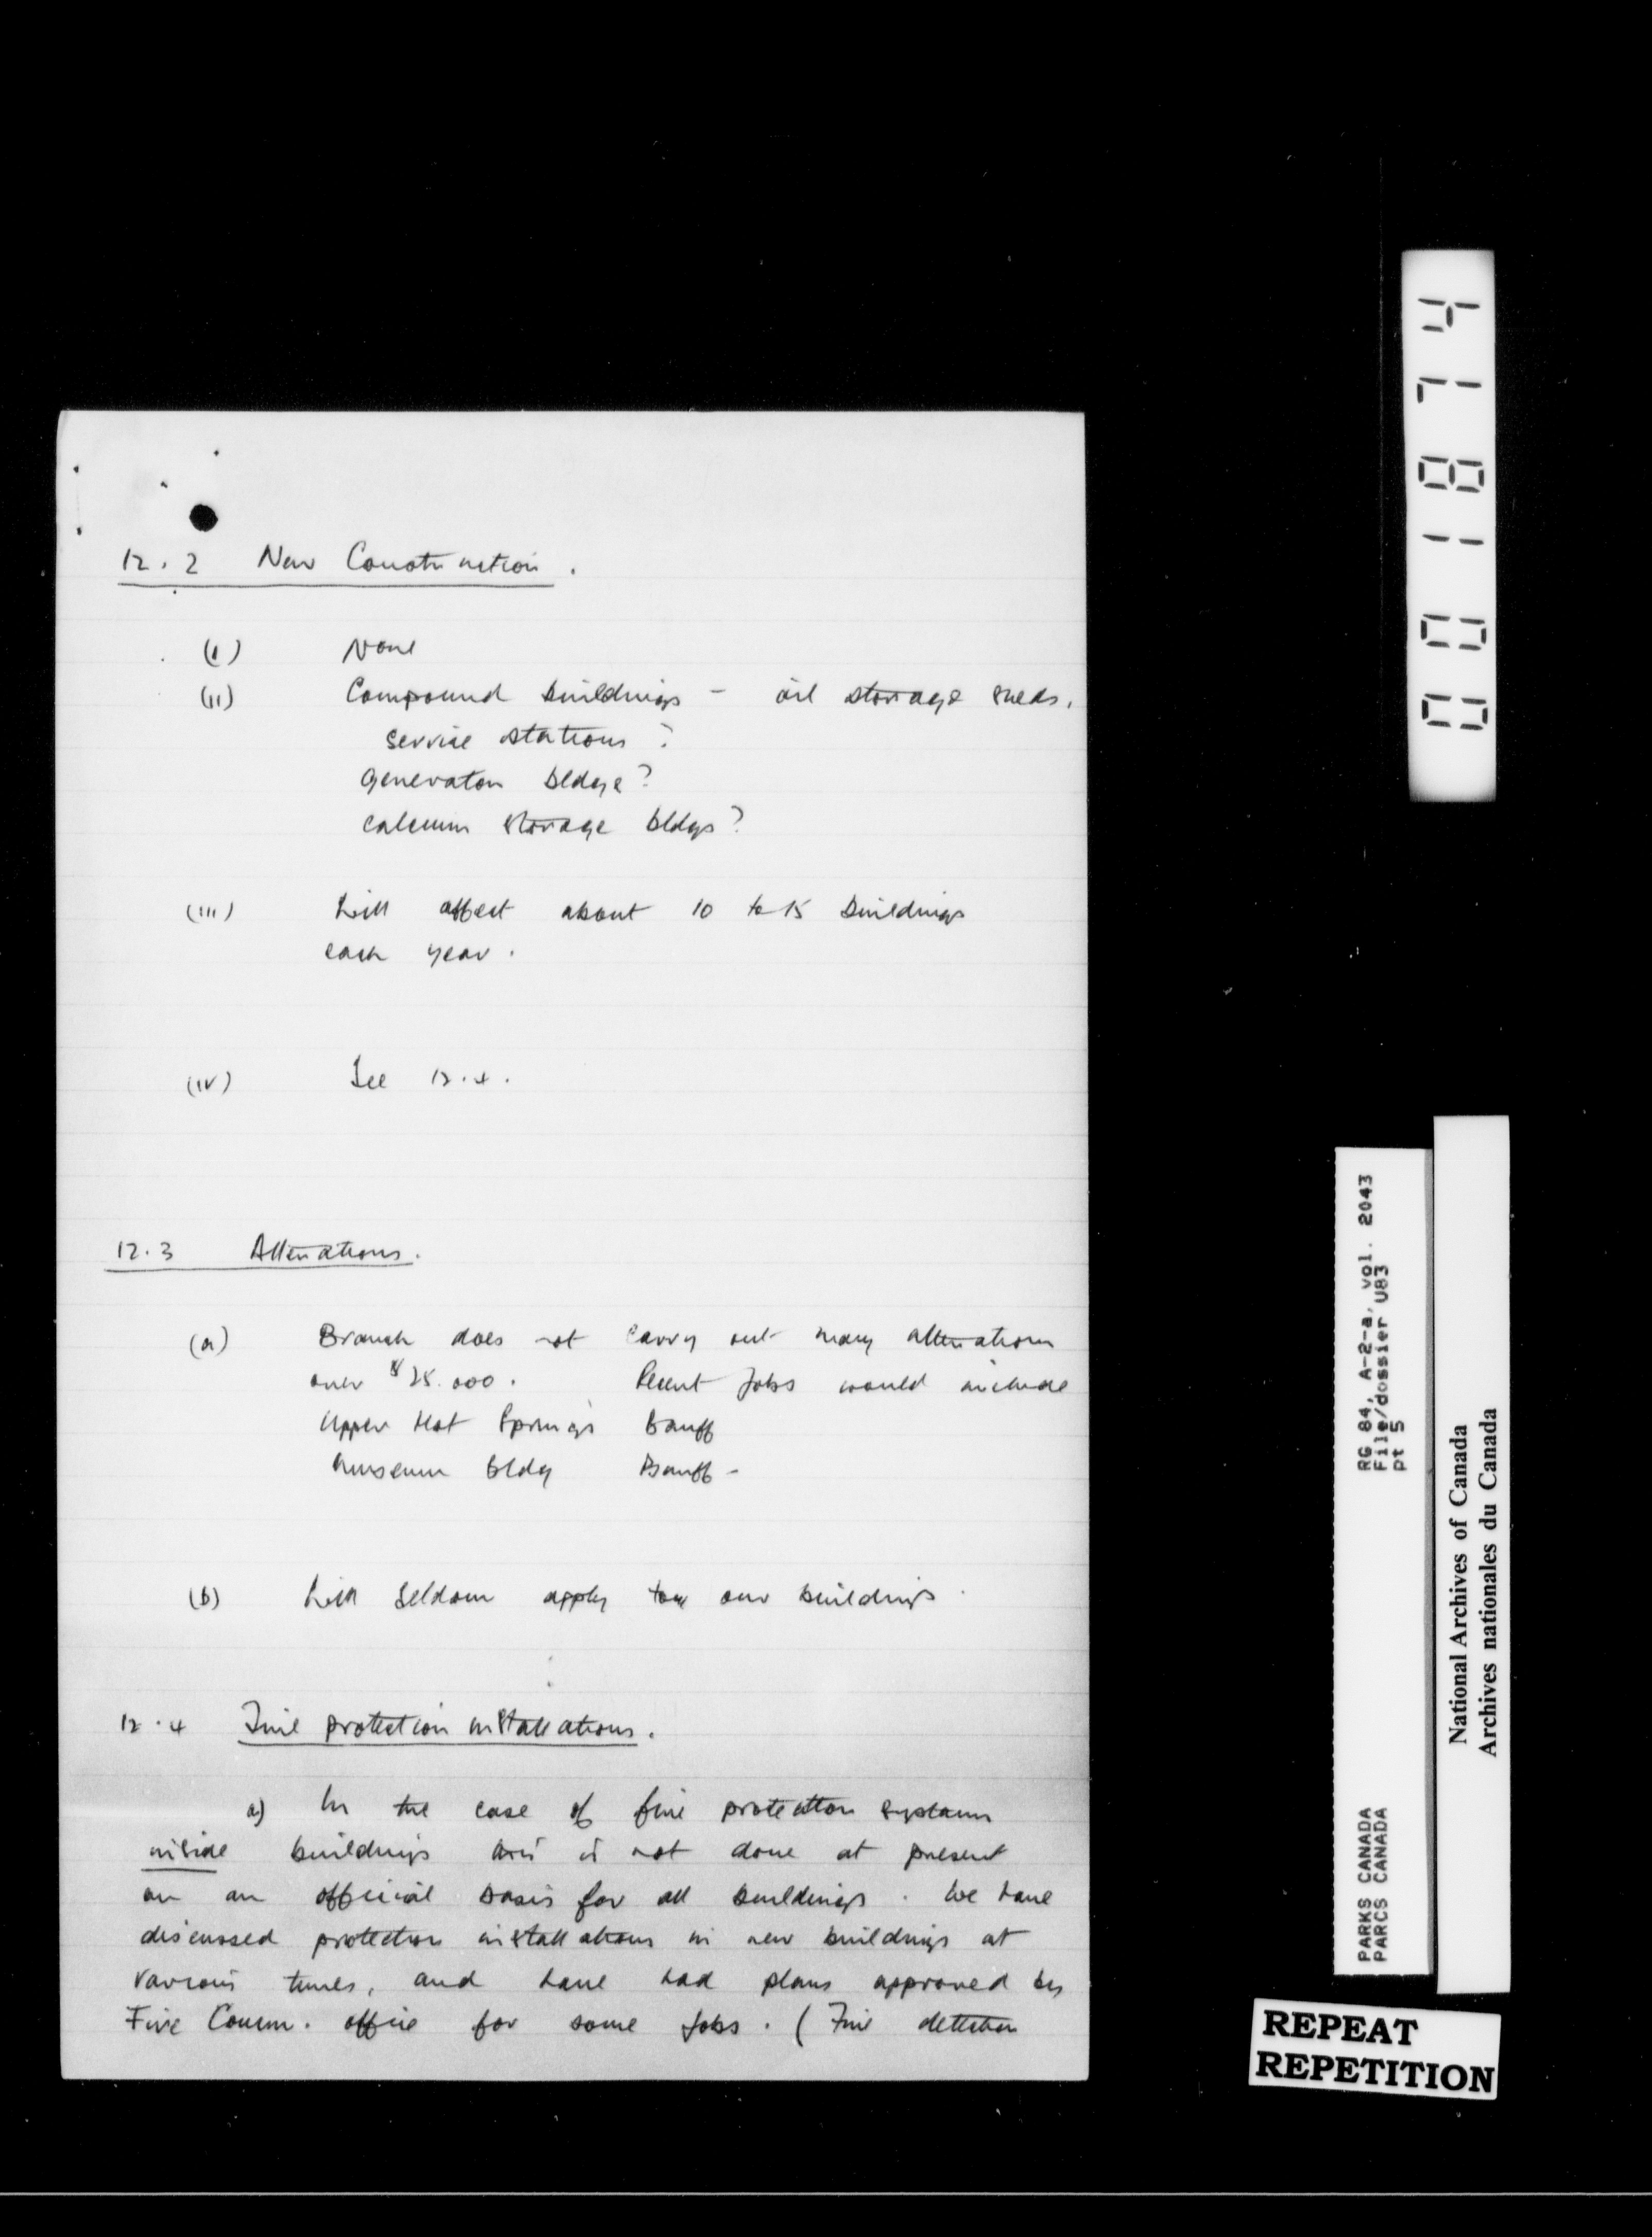 12.2 New Construction.
(i) None
(ii) Compound buildings - oil storage sheds,
service stations?
generator bldgs?
calcium storage bldgs?
(iii) Will affect about 10 to 15 buildings
each year.
(iv) See 12.4.
12.3 Alterations.
(a) Branch does not carry out many alterations
over $25.000. Recent jobs would include
Upper Hot Springs Banff
Museum bldg Banff -
(b) Will seldom apply to our buildings.
12.4 Fire protection installations.
a) In the case of fire protection systems
inside buildings this is not done at present
on an official basis for all buildings. We have
discussed protection installations in new buildings at
various times, and have had plans approved by
Fire Comm. office for some jobs. (Fire detection
001874
RG 84, A-2-a, vol. 2043
File/dossier U83
pt 5
PARKS CANADA
PARCS CANADA
National Archives of Canada
Archives nationales du Canada
REPEAT
REPETITION